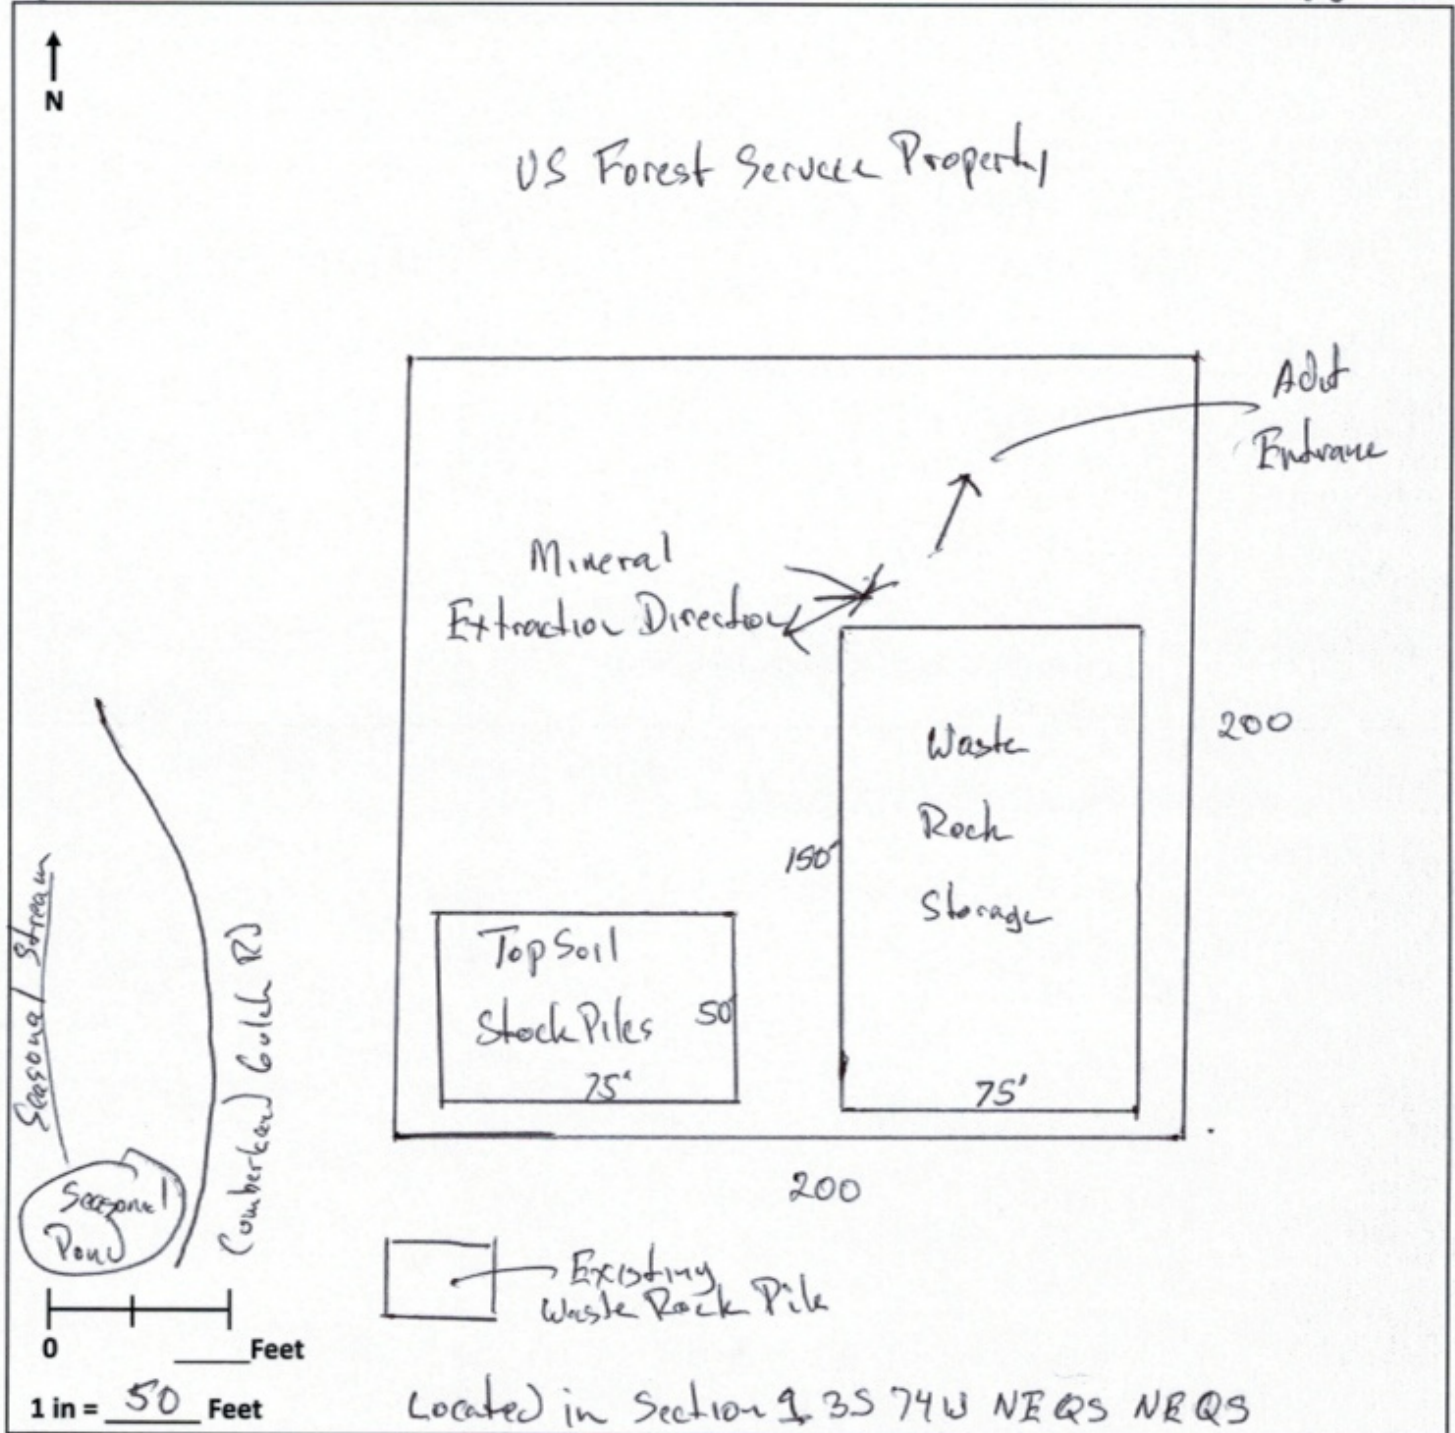 N
US Forest Service Property
Adit
Entrance
Mineral
Extraction Direction
200
Waste
Rock
Storage
150'
75'
Top Soil
Stock Piles
50'
75'
200
Seasonal Stream
Cumberland Gulch Rd
Seasonal
Pond
Existing
Waste Rock Pile
0 ____ Feet
1 in = 50 Feet
Located in Section 1 3S 74W NE QS NE QS